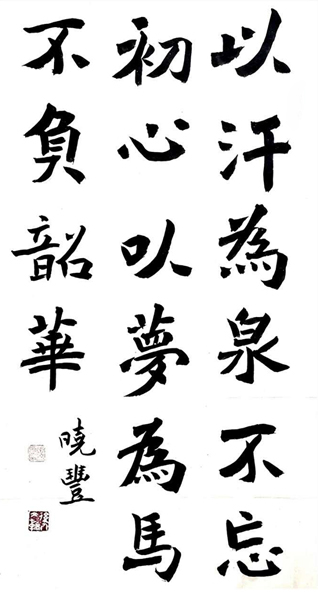 以汗為泉不忘
初心以夢為馬
不負韶華
曉豐